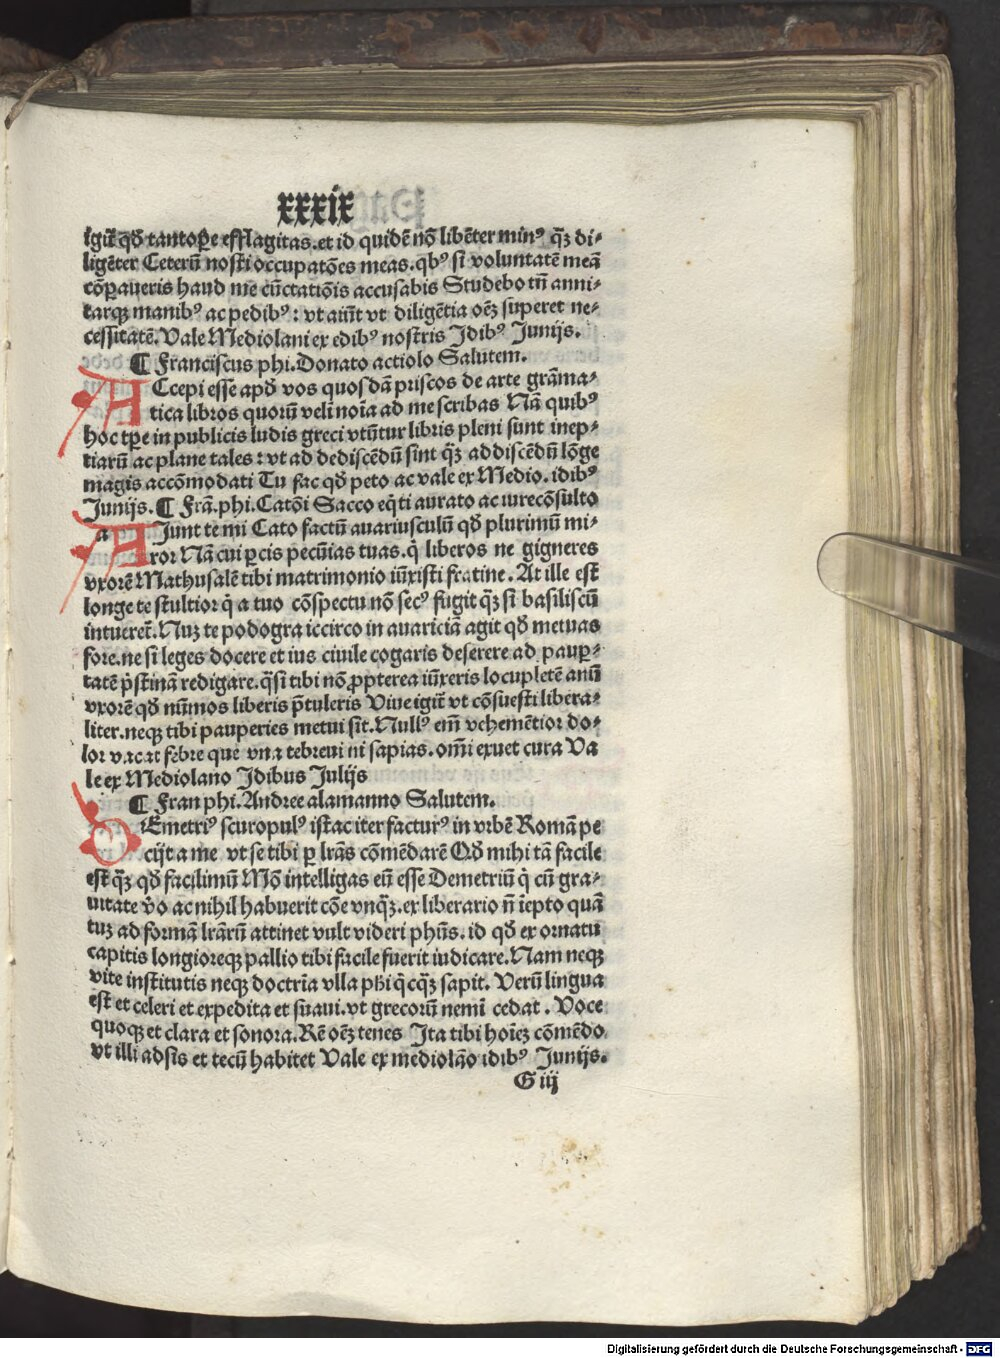 xxxix
igit̃ qđ tantoꝑe efflagitas. et id quidẽ nõ libẽter minꝰ qꝫ̃ di⸗
ligẽter Ceterũ nosti occupatões meas. qbꝰ si voluntatẽ meã
cõꝑaueris haud me cũctatiõis accusabis Studebo tñ anni⸗
tarqꝫ manibꝰ ac pedibꝰ: vt aiũt vt diligẽtia oẽꝫ superet ne⸗
cessitatẽ. Vale Mediolani ex edibꝰ nostris Idibꝰ Junijs.
¶ Franciscus phi. Donato actiolo Salutem.
ACcepi esse apđ vos quosdã priscos de arte grãma⸗
tica libros quorũ veli noĩa ad me scribas Nã quibꝰ
hoc tꝑe in publicis ludis greci vtũtur libris pleni sunt inep⸗
tiarũ ac plane tales: vt ad dediscẽdũ sint qꝫ̃ ad discẽdũ lõge
magis accõmodati Tu fac qđ peto ac vale ex Medio. idibꝰ
Junijs. ¶ Frã. phi. Catõi Sacco eq̃ti aurato ac iurecõsulto
AJunt te mi Cato factũ auariusculũ qđ plurimũ mi⸗
ror Nã cui ꝑcis pecũias tuas. q̃ liberos ne gigneres
vxorẽ Mathusalẽ tibi matrimonio iũxisti fratine. At ille est
longe te stultior q̃ a tuo cõspectu nõ secꝰ fugit qꝫ̃ si basiliscũ
intueret̃. Nuꝫ te podogra iccirco in auariciã agit qđ metuas
fore. ne si leges docere et ius ciuile cogaris deserere ad pauꝑ⸗
tatẽ p̃stinã redigare. q̃si tibi nõ ꝓpterea iũxeris locupletẽ anũ
vxorẽ qđ nũmos liberis p̃tuleris Viue igit̃ vt cõsuesti libera⸗
liter. neqꝫ tibi pauperies metui sit. Nullꝰ em̃ vehemẽtior do⸗
lor vacat febre que vna te breui ni sapias. om̃i exuet cura Va
le ex Mediolano Idibus Julijs
¶ Fran phi. Andree alamanno Salutem.
DEmetriꝰ scuropulꝰ istac iter facturꝰ in vrbẽ Romã pe
cijt a me vt se tibi ꝑ lr̃as cõmẽdarẽ Qđ mihi tã facile
est qꝫ̃ qđ facilimũ Mõ intelligas eũ esse Demetriũ q̃ cũ gra⸗
uitate ṽo ac nihil habuerit cõe vnqꝫ̃. ex liberario ñ iẽpto quã
tuꝫ ad formã lr̃arũ attinet vult videri phũs. id qđ ex ornatu
capitis longioreqꝫ pallio tibi facile fuerit iudicare. Nam neqꝫ
vite institutis neqꝫ doctria vlla phi q̃cqꝫ̃ sapit. Verũ lingua
est et celeri et expedita et suaui. vt grecorũ nemĩ cedat. Voce
quoqꝫ et clara et sonora. Rẽ oẽꝫ tenes Ita tibi hoĩeꝫ cõmẽdo
vt illi adsis et tecũ habitet Vale ex mediolão idibꝰ Junijs.
G iij
Digitalisierung gefördert durch die Deutsche Forschungsgemeinschaft - DFG